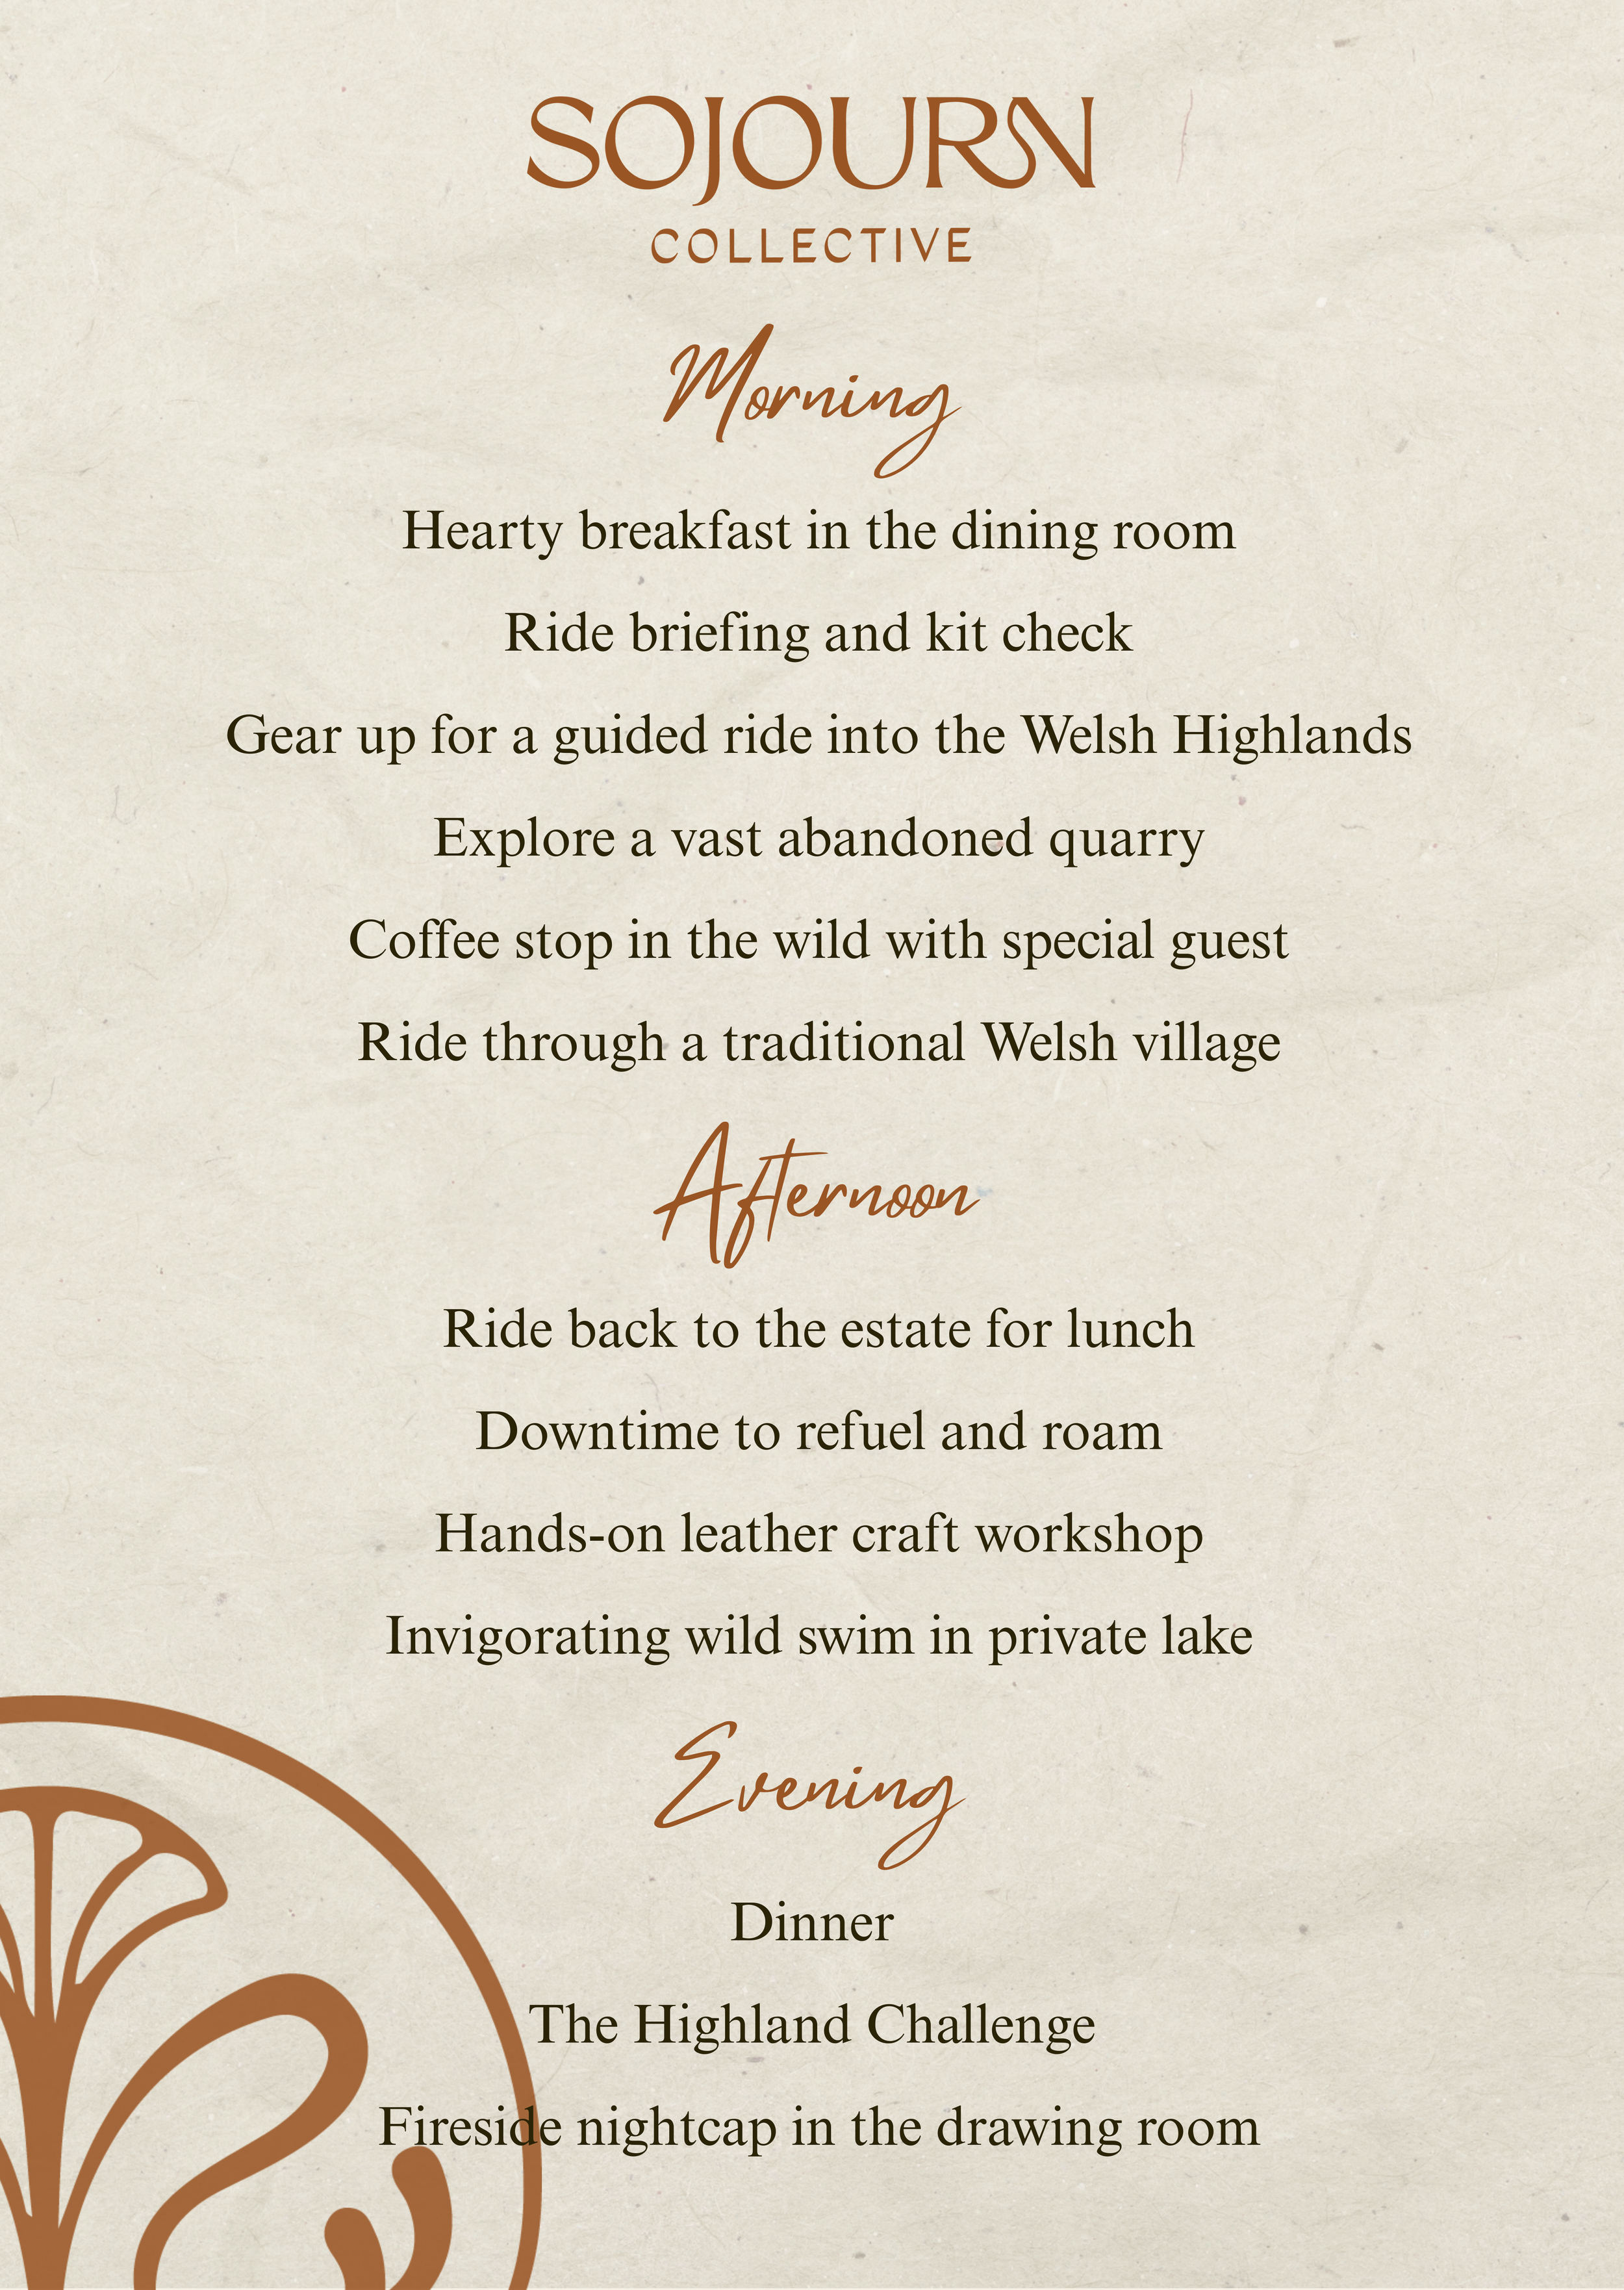 SOJOURN
COLLECTIVE
Morning
Hearty breakfast in the dining room
Ride briefing and kit check
Gear up for a guided ride into the Welsh Highlands
Explore a vast abandoned quarry
Coffee stop in the wild with special guest
Ride through a traditional Welsh village
Afternoon
Ride back to the estate for lunch
Downtime to refuel and roam
Hands-on leather craft workshop
Invigorating wild swim in private lake
Evening
Dinner
The Highland Challenge
Fireside nightcap in the drawing room